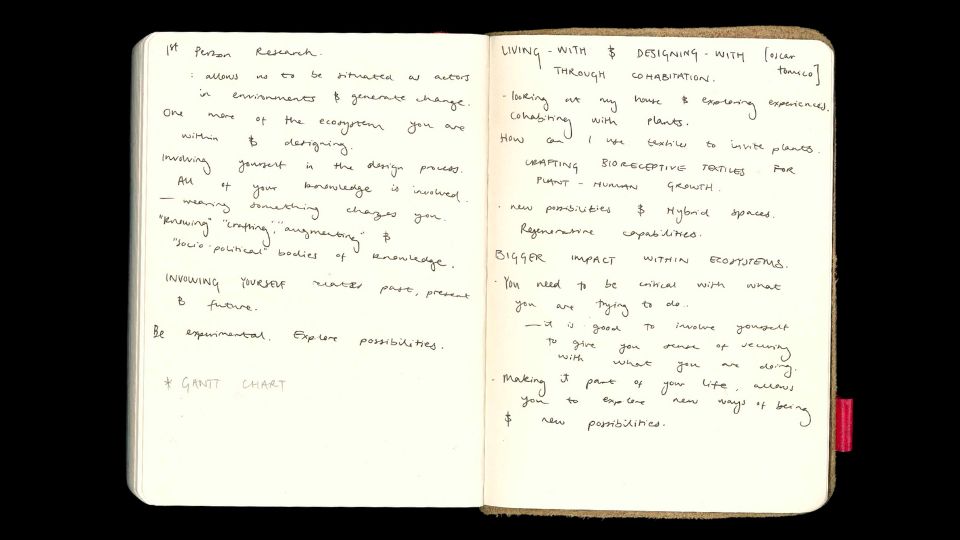 1st Person Research.
: allows us to be situated as actors
in environments & generate change.
One more of the ecosystem you are
within & designing.
Involving yourself in the design process.
All of your knowledge is involved.
— meaning something changes you.
"Knowing" "crafting", "augmenting" &
"socio-political" bodies of knowledge.
INVOLVING YOURSELF relates past, present
& future.
Be experimental. Explore possibilities.
* GANTT CHART
LIVING-WITH & DESIGNING-WITH [oscar
THROUGH COHABITATION. tomico]
- looking at my house & exploring experiences.
Cohabiting with plants.
How can I use textiles to invite plants.
CRAFTING BIORECEPTIVE TEXTILES FOR
PLANT-HUMAN GROWTH.
· new possibilities & Hybrid spaces.
Regenerative capabilities.
BIGGER IMPACT WITHIN ECOSYSTEMS.
· You need to be critical with what
you are trying to do..
— it is good to involve yourself
to give you sense of security
with what you are doing.
· Making it part of your life, allows
you to explore new ways of being
& new possibilities.